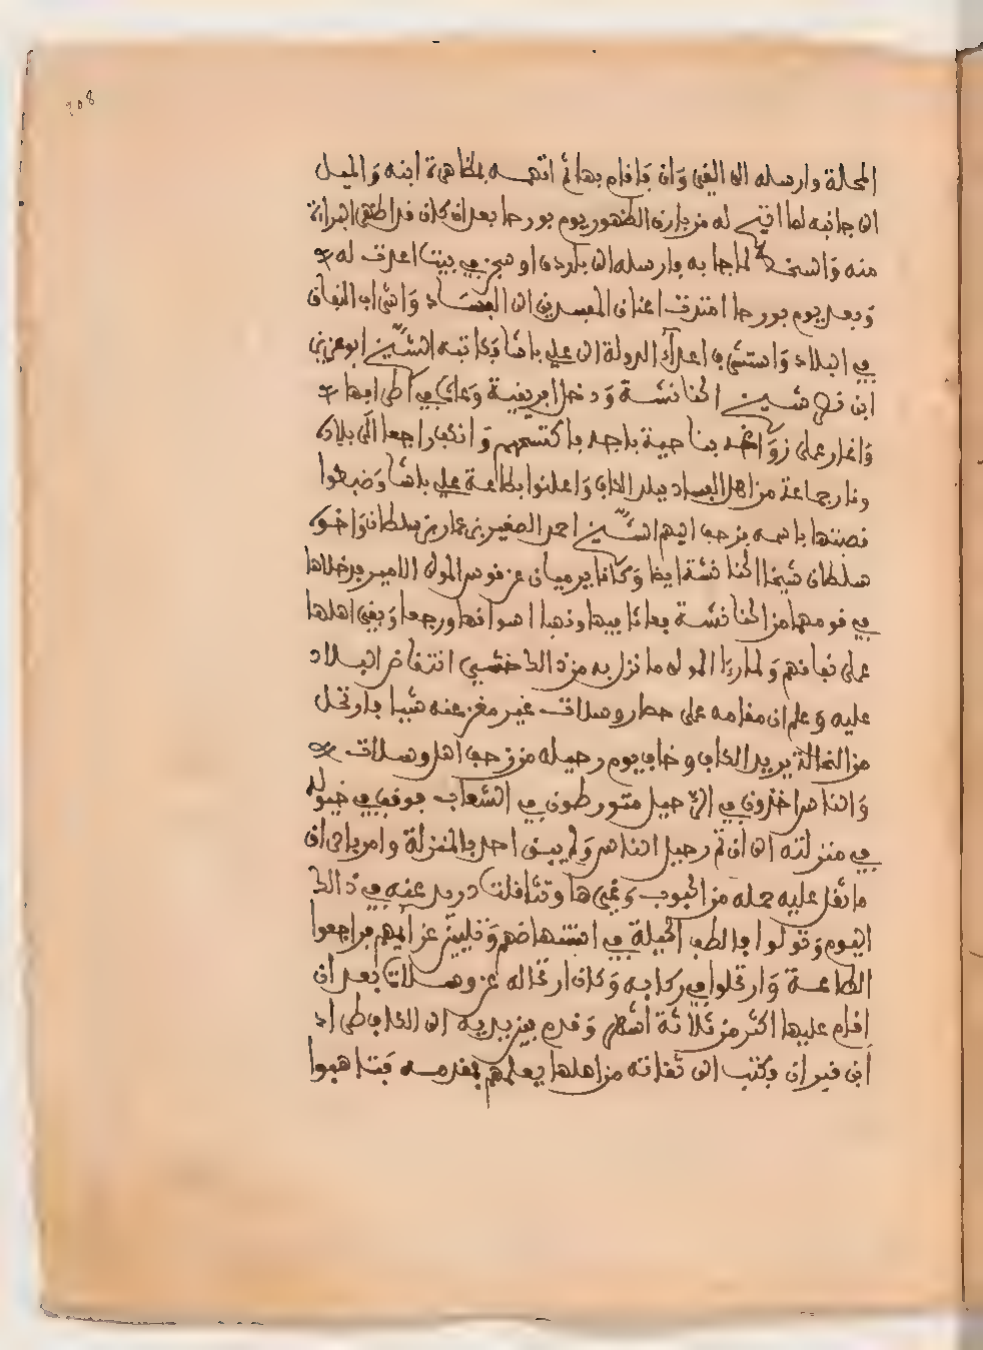 208
المحلة وارسله الى القيروان فاقام بها ثم اتهمه بمظاهرة ابنه والميل
الى جانبه لما له من بارق الظهور يوم بورحا بعد ان كان قد اظهر البراءة
منه لما جا به فارسله الى باردو او سجن في بيت اعدت له
وبعد يوم بورحا امتدت اعناق المفسدين الى الفساد واشراب النفاق
في البلاد واستشرى اعداء الدولة الى علي باشا وكاتبه الشيخ ابو عزيز
ابن نصر شيخ الحنانشة ودخل افريقية وعاث في اطرافها
واغار على زواغة بناحية باجة فاكتسحهم وانكفا راجعا الى بلاده
وثار جماعة من اهل الفساد ببلد الكاف واعلنوا بطاعة علي باشا وضبطوا
قصبتها باسمه فزحف اليهم الشيخ احمد الصغير بن عمار بن سلطان واخوه
سلطان شيخا الحنانشة ايضا وكانا يرميان عن قوس المولى الامير فدخلاها
في قومهما من الحنانشة فعاثا فيها ونهبا اسواقها ورجعا وبقي اهلها
على نفاقهم ولما راى المولى ما نزل به من ذلك خشي انتقاض البلاد
عليه وعلم ان مقامه على حصار وسلات غير مغن عنه شيئا فارتحل
من النخالة يريد الكاف وخاف يوم رحيله من زحف اهل وسلات
والناس اخذون في الرحيل متورطون في الشعاب فوقف في خيوله
في منزلته الى ان تم رحيل الناس ولم يبق احد بالمنزلة وامر باحراق
ما ثقل عليه حمله من الحبوب وغيرها وتثاقلت دريد عنه في ذلك
اليوم وتولوا فالطف الحيلة في استنهاضهم وتليين عزائمهم فراجعوا
الطاعة وارتحلوا في ركابه وكان ارتحاله عن وسلات بعد ان
اقام عليها اكثر من ثلاثة اشهر وقدم بين يديه الى الكاف طراد
ابن فيران وكتب الى ثقاته من اهلها يعلمهم بمقدمه فتاهبوا